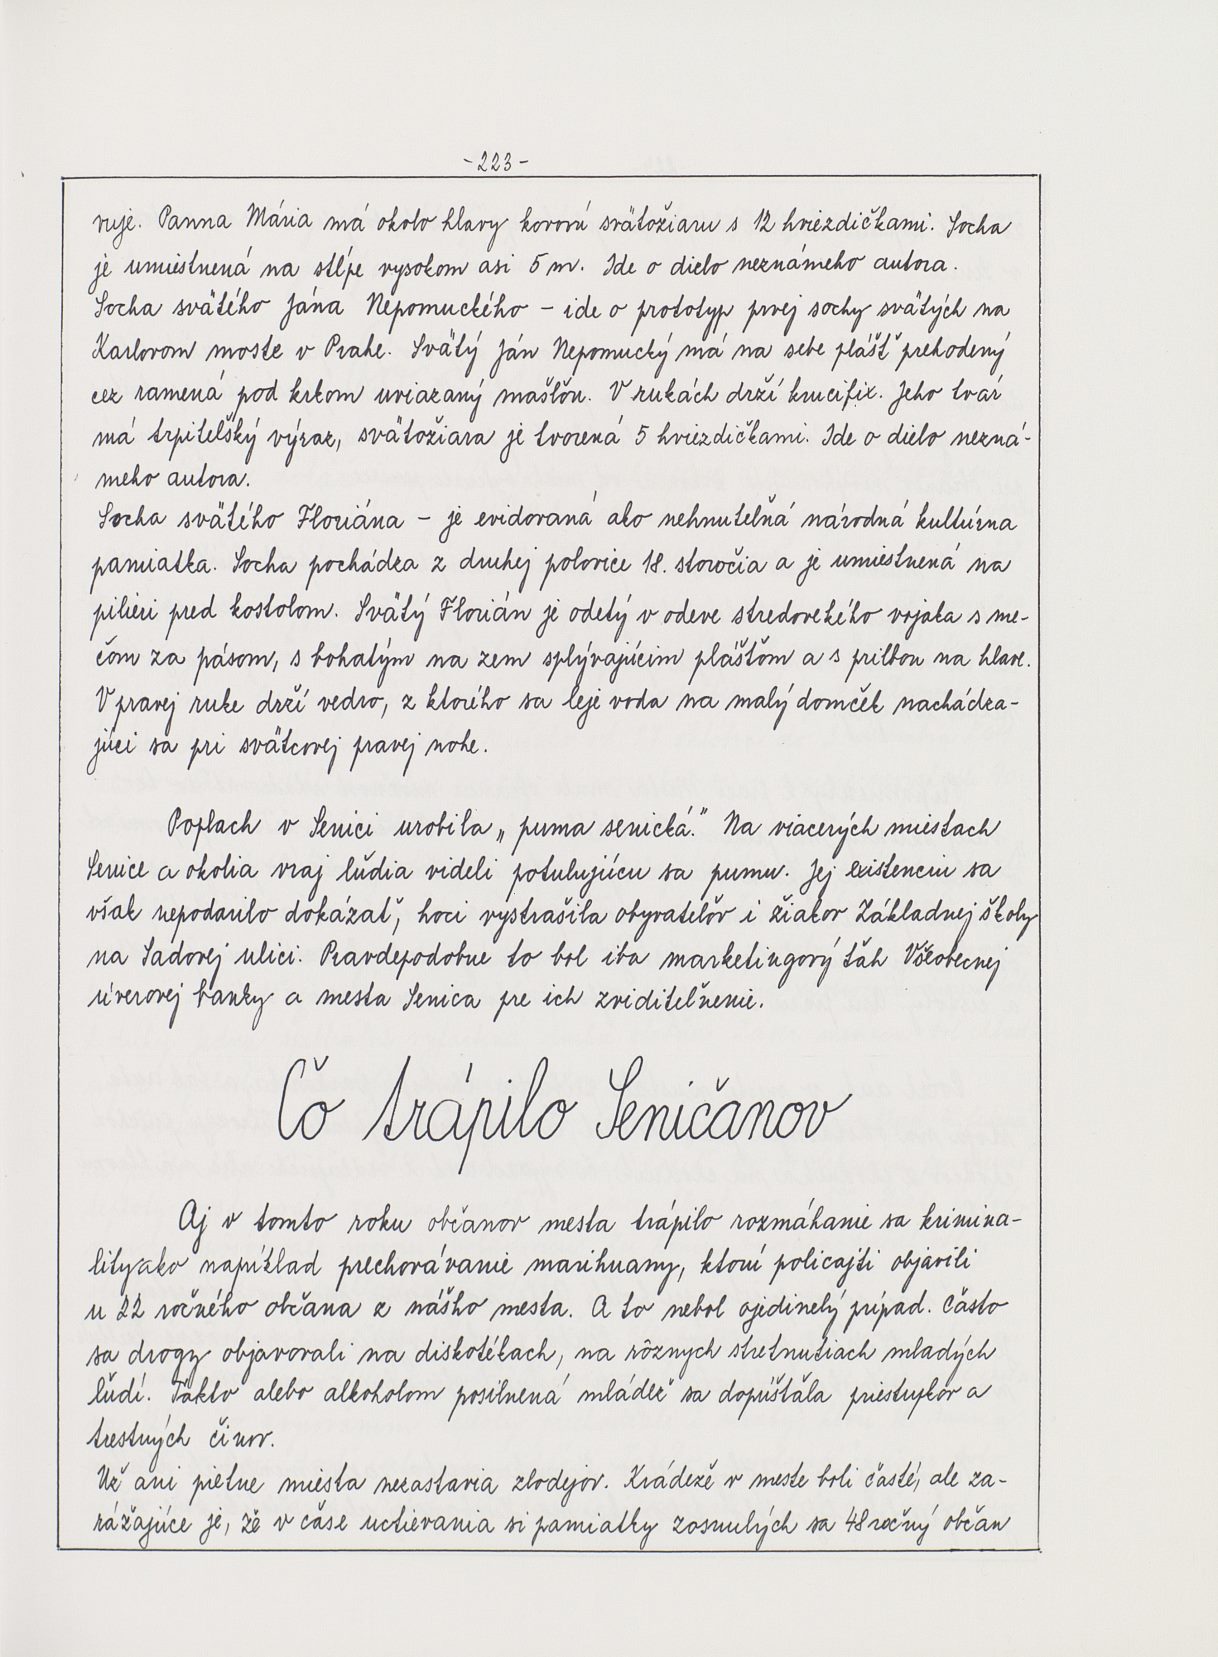 -223-
ruje. Panna Mária má okolo hlavy kovovú svätožiaru s 12 hviezdičkami. Socha
je umiestnená na stĺpe vysokom asi 5 m. Ide o dielo neznámeho autora.
Socha svätého Jána Nepomuckého - ide o prototyp prvej sochy svätých na
Karlovom moste v Prahe. Svätý Ján Nepomucký má na sebe plášť prehodený
cez ramená pod krkom uviazaný mašľou. V rukách drží krucifix. Jeho tvár
má trpiteľský výraz, svätožiara je tvorená 5 hviezdičkami. Ide o dielo nezná-
meho autora.
Socha svätého Floriána - je evidovaná ako nehnuteľná národná kultúrna
pamiatka. Socha pochádza z druhej polovice 18. storočia a je umiestnená na
pilieri pred kostolom. Svätý Florián je odetý v odeve stredovekého vojaka s me-
čom za pásom, s bohatým na zem splývajúcim plášťom a s prilbou na hlave.
V pravej ruke drží vedro, z ktorého sa leje voda na malý domček nachádza-
júci sa pri svätcovej pravej nohe.
Poplach v Senici urobila „puma senická." Na viacerých miestach
Senice a okolia vraj ľudia videli potulujúcu sa pumu. Jej existenciu sa
však nepodarilo dokázať, hoci vystrašila obyvateľov i žiakov Základnej školy
na Sadovej ulici. Pravdepodobne to bol iba marketingový ťah Všeobecnej
úverovej banky a mesta Senica pre ich zviditeľnenie.
Čo trápilo Seničanov
Aj v tomto roku občanov mesta trápilo rozmáhanie sa krimina-
lity ako napríklad prechovávanie marihuany, ktorú policajti objavili
u 22 ročného občana z nášho mesta. A to nebol ojedinelý prípad. Často
sa drogy objavovali na diskotékach, na rôznych stretnutiach mladých
ľudí. Takto alebo alkoholom posilnená mládež sa dopúšťala priestupkov a
trestných činov.
Už ani pietne miesta nezastavia zlodejov. Krádeže v meste boli časté, ale za-
rážajúce je, že v čase uctievania si pamiatky zosnulých sa 48 ročný občan